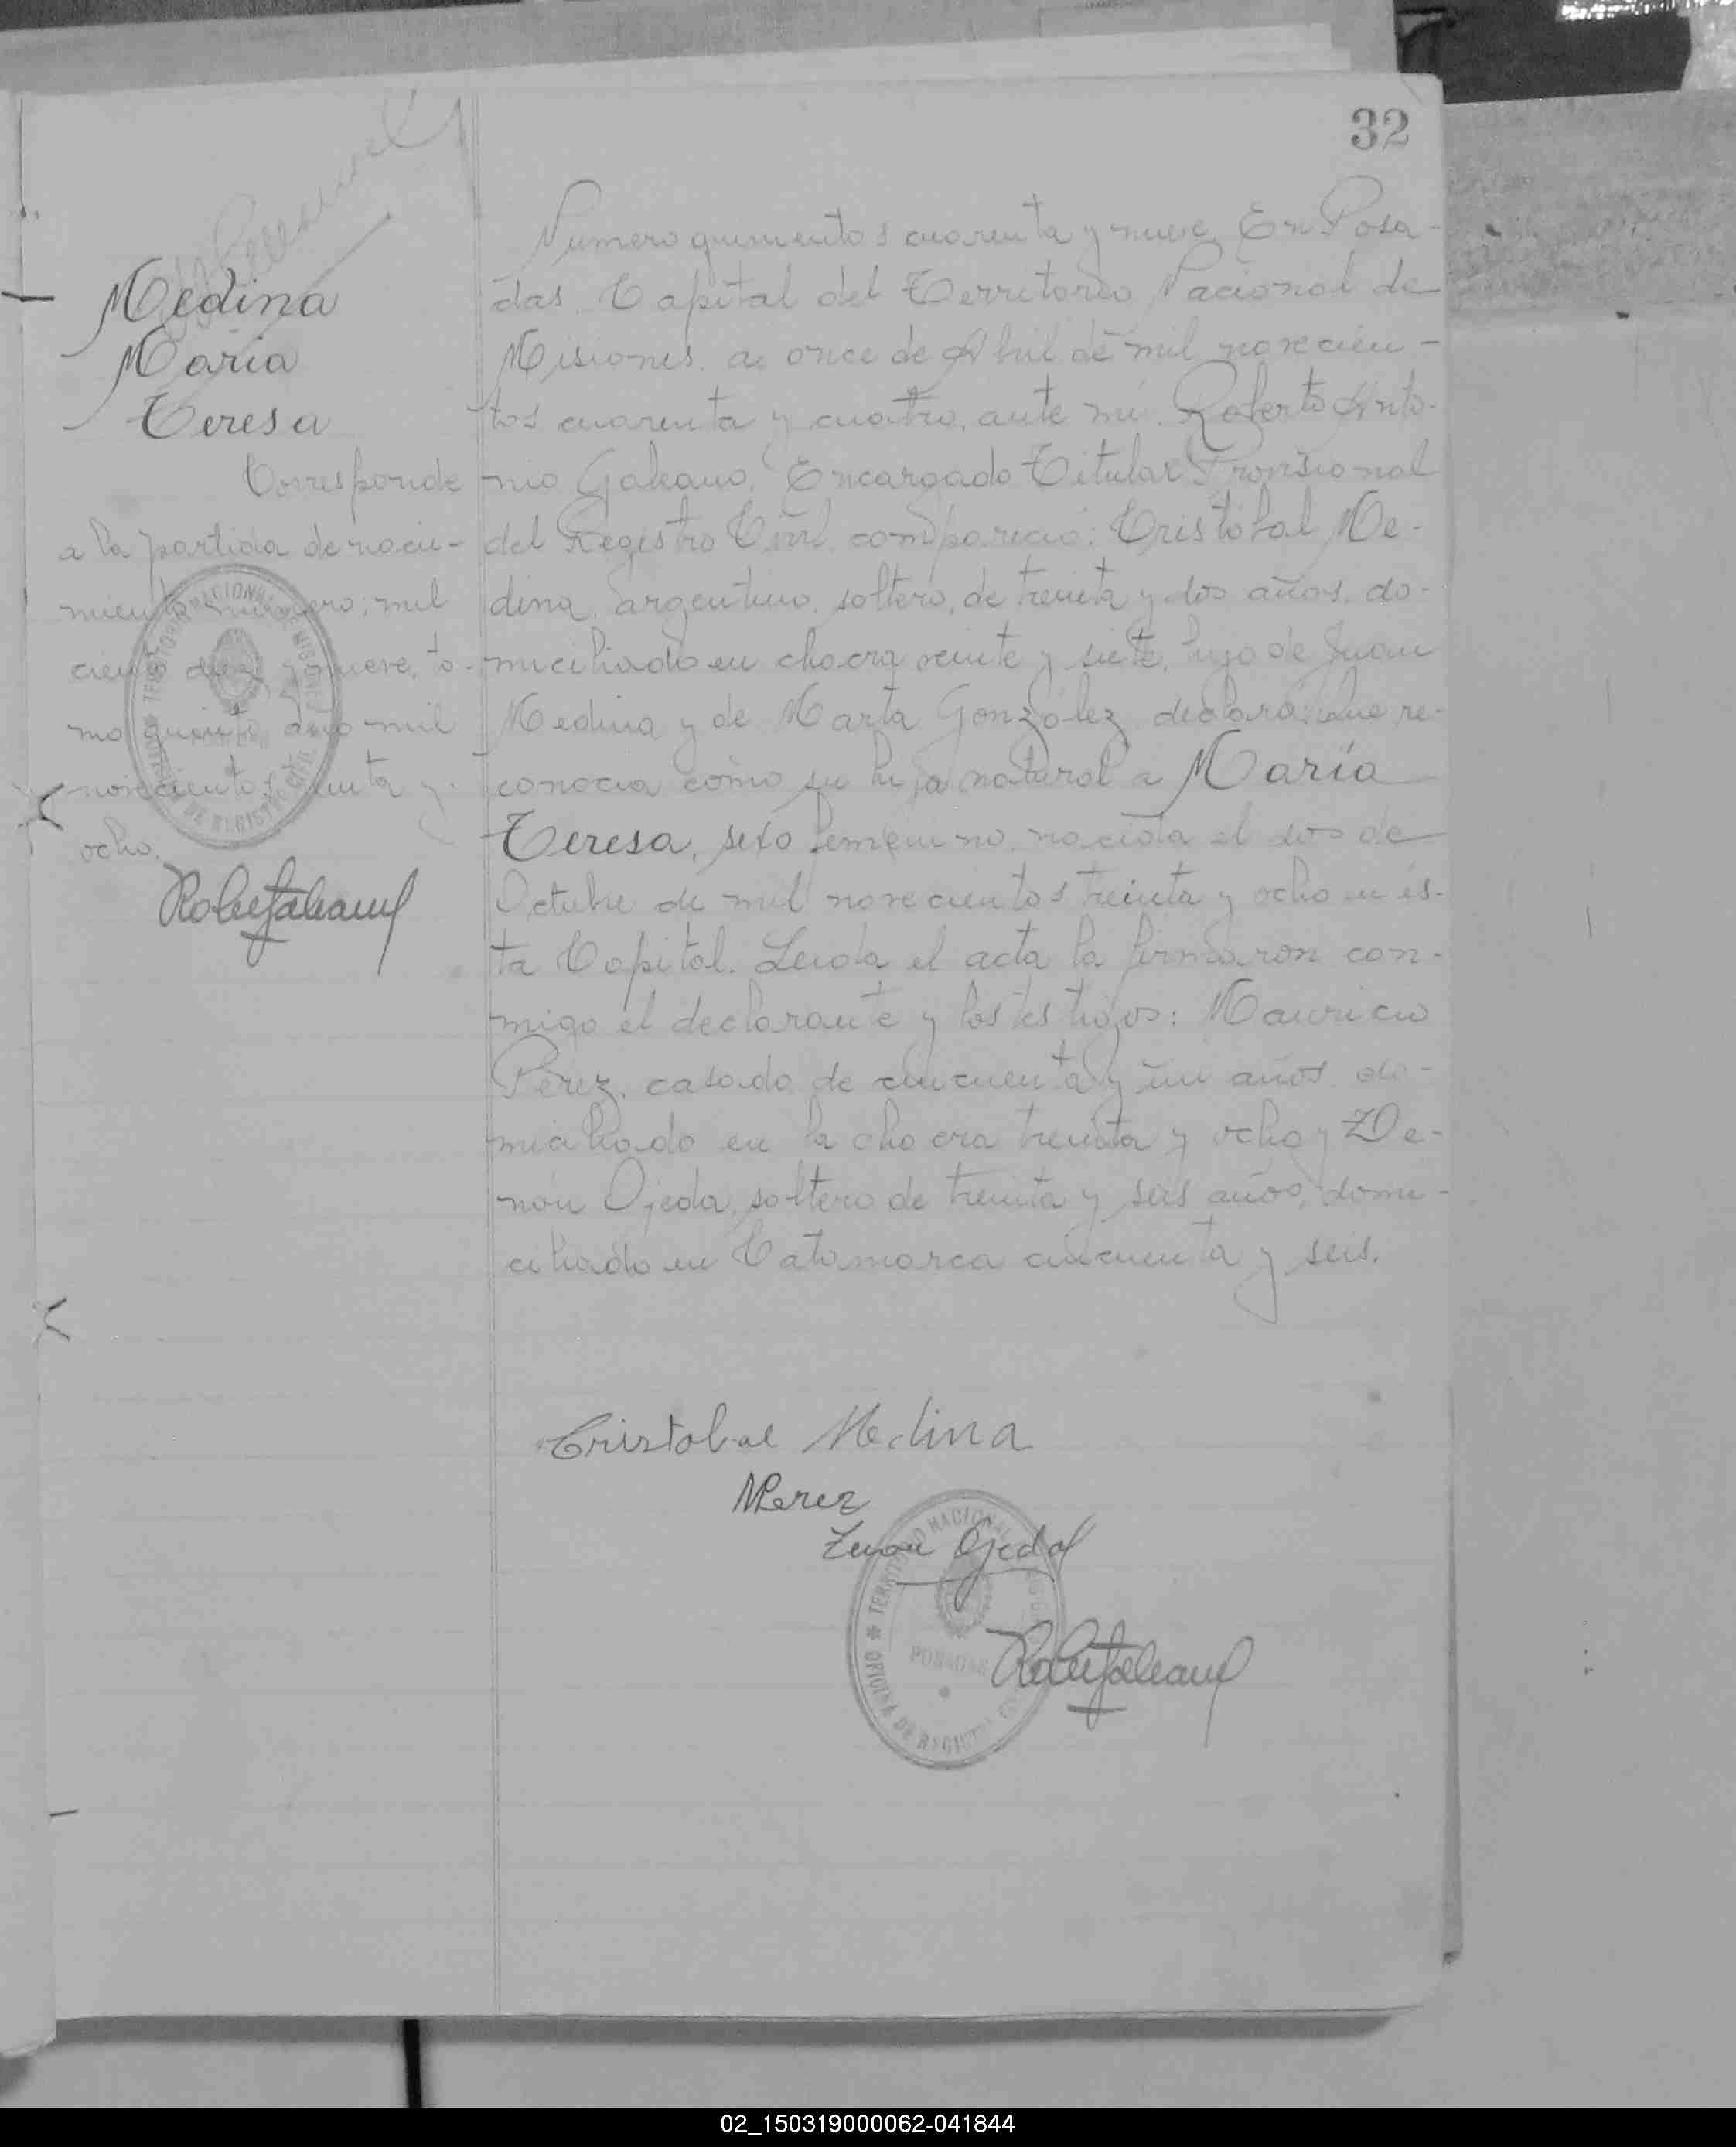 32
Medina
Maria
Teresa
Corresponde
a la partida de naci-
miento número: mil
ciento diez y nueve, to-
mo quinto año mil
novecientos treinta y
ocho.
Numero quinientos cuarenta y nueve. En Posa-
das. Capital del Territorio Nacional de
Misiones. a once de Abril de mil novecien-
tos cuarenta y cuatro, ante mi. Roberto Anto-
nio Galeano, Encargado Titular Provisional
del Registro Civil. comparecio: Cristobal Me-
dina. argentino. soltero, de treinta y dos años. do-
miciliado en chacra veinte y siete, hijo de Juan
Medina y de Marta González declara: Que re-
conocia como su hija natural a María
Teresa, sexo femenino nacida el dos de
Octubre de mil novecientos treinta y ocho en és-
ta Capital. Leida el acta la firmaron con-
migo el declarante y los testigos: Mauricio
Pérez. casado de cincuenta y un años do-
miciliado en la chacra treinta y ocho y Ze-
nón Ojeda, soltero de treinta y seis años, domi-
ciliado en Catamarca cincuenta y seis.
Cristobal Medina
MPerez
Zenon Ojeda
TERRITORIO NACIONAL DE MISIONES
OFICINA DE REGISTRO CIVIL
POSADAS
02_150319000062-041844